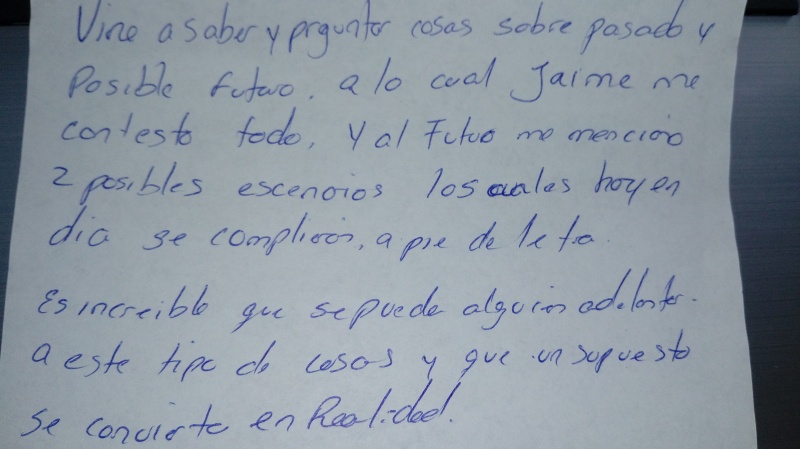 Vine a saber y prguntar cosas sobre pasado y
Posible futuro. a lo cual Jaime me
contesto todo, y al Futuo me menciono
2 posibles escenarios los cuales hoy en
dia se complieron, a pie de letra.
Es increible que se pueda alguien adelantar
a este tipo de cosas y que un supuesto
se convierta en Realidad.